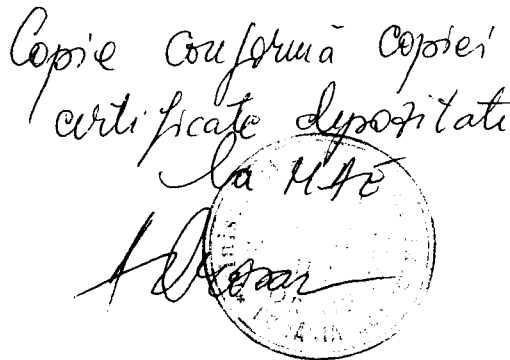 Copie conformă copiei
certificate depozitate
la MAE